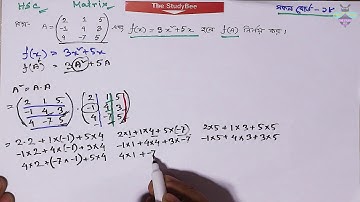 HSC Matrix The StudyBee সকল বোর্ড-১৮
প্রশ্ন- A = (2 1 5
-1 4 3
9 -7 5) এবং f(x) = 3x²+5x হলে f(A) নির্ণয় কর।
f(x) = 3x²+5x
f(A) = 3A²+5A
A² = A·A
= (2 1 5
-1 4 3
4 -7 5) · (2 1 5
-1 4 3
4 -7 5)
= 2·2 + 1×(-1) + 5×4 2×1+1×4+5×(-7) 2×5+1×3+5×5
-1×2+4×(-1)+3×4 -1×1+4×4+3×-7 -1×5+4×3+3×5
4×2+(-7×-1)+5×4 4×1+-7